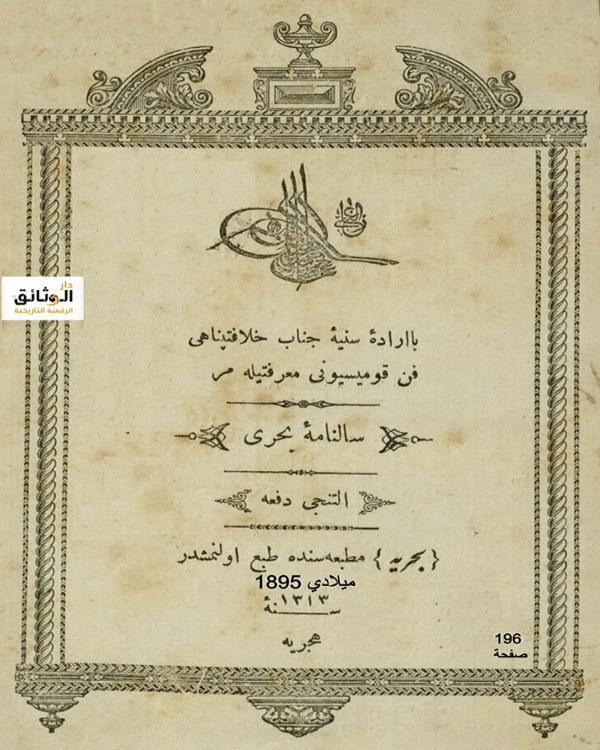 دار
الوثائق
الرقمية التاريخية
باارادهٔ سنيهٔ جناب خلافتپناهى
فن قوميسيونى معرفتيله مر
سالنامهٔ بحرى
التنجى دفعه
{بحريه} مطبعه‌سنده طبع اولنمشدر
ميلادي 1895
١٣١٣
سنهٔ
هجريه
196
صفحة